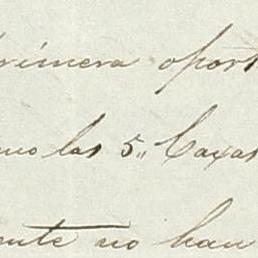 rimera oport
mo las 5,, Caxas
ente no han